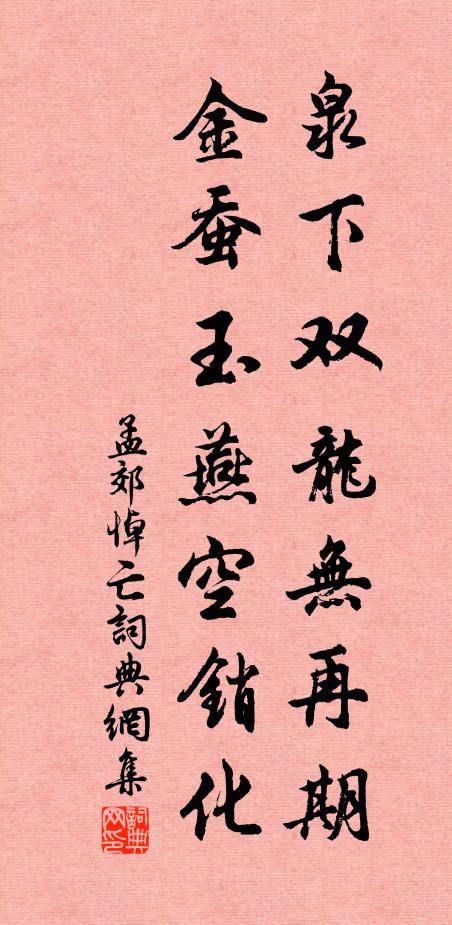 泉下双龍無再期
金蚕玉燕空銷化
孟郊悼亡詞典網集
詞典网印